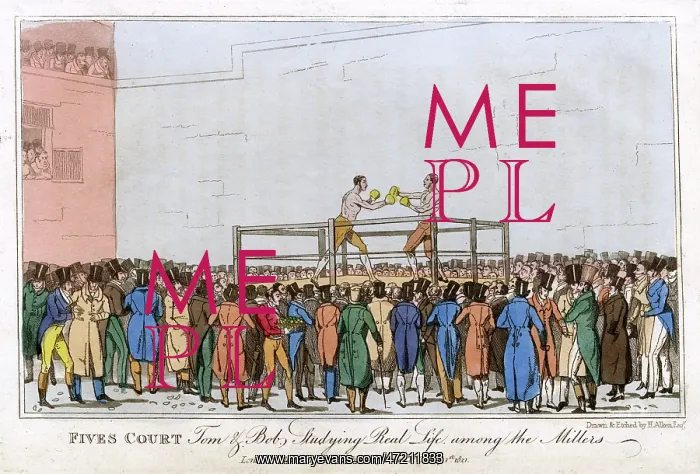 ME
PL
ME
PL
Drawn & Etched by H. Alken, Esqr.
FIVES COURT Tom & Bob, Studying Real Life, among the Millers
www.maryevans.com/47211833
1821.